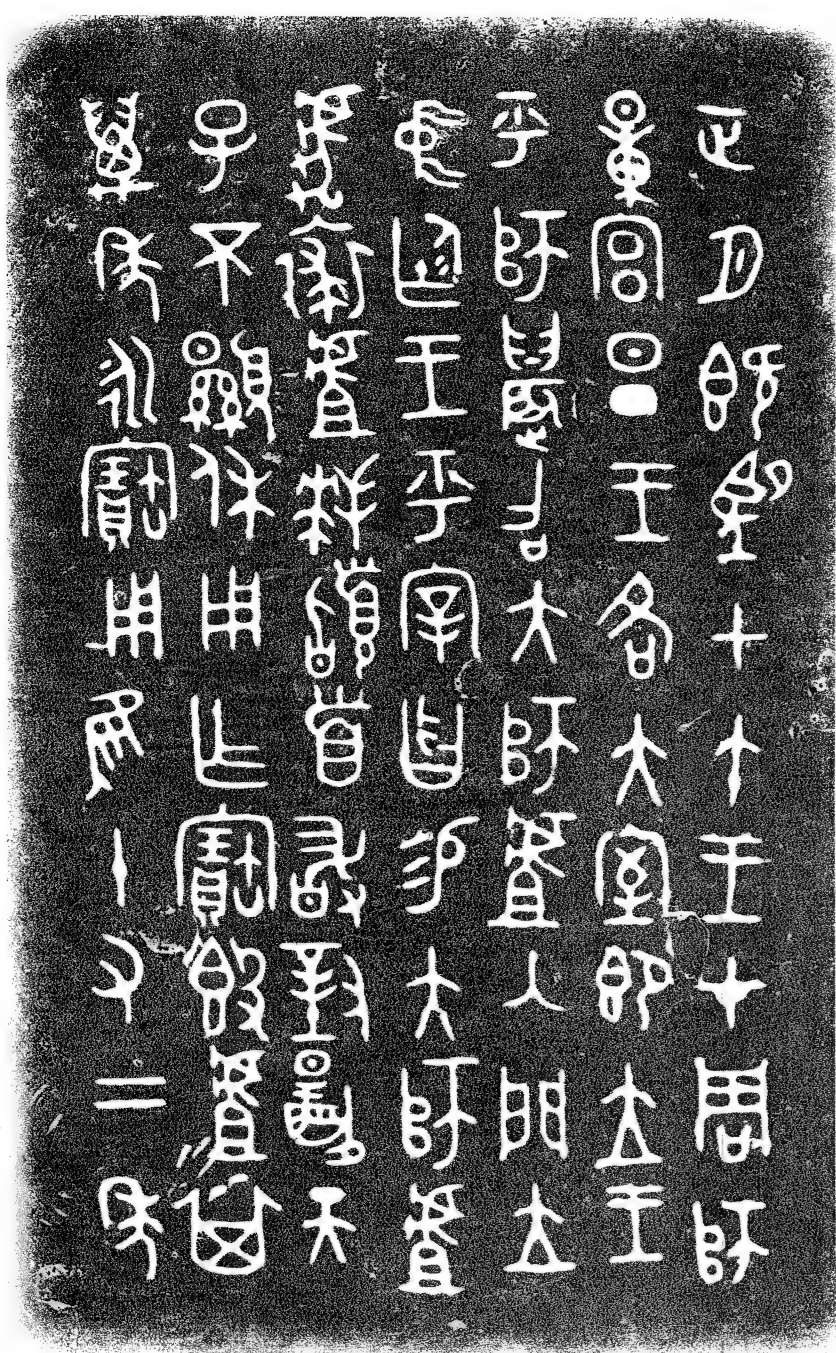 正月既望甲午王才周師
量宮旦王各大室即立王
乎師晨召大師虘入門立
中廷王乎宰曶易大師虘
虎裘虘拜𩒨首敢對揚天
子不顯休用乍寶𣪘虘其
萬年永寶用隹十又二年